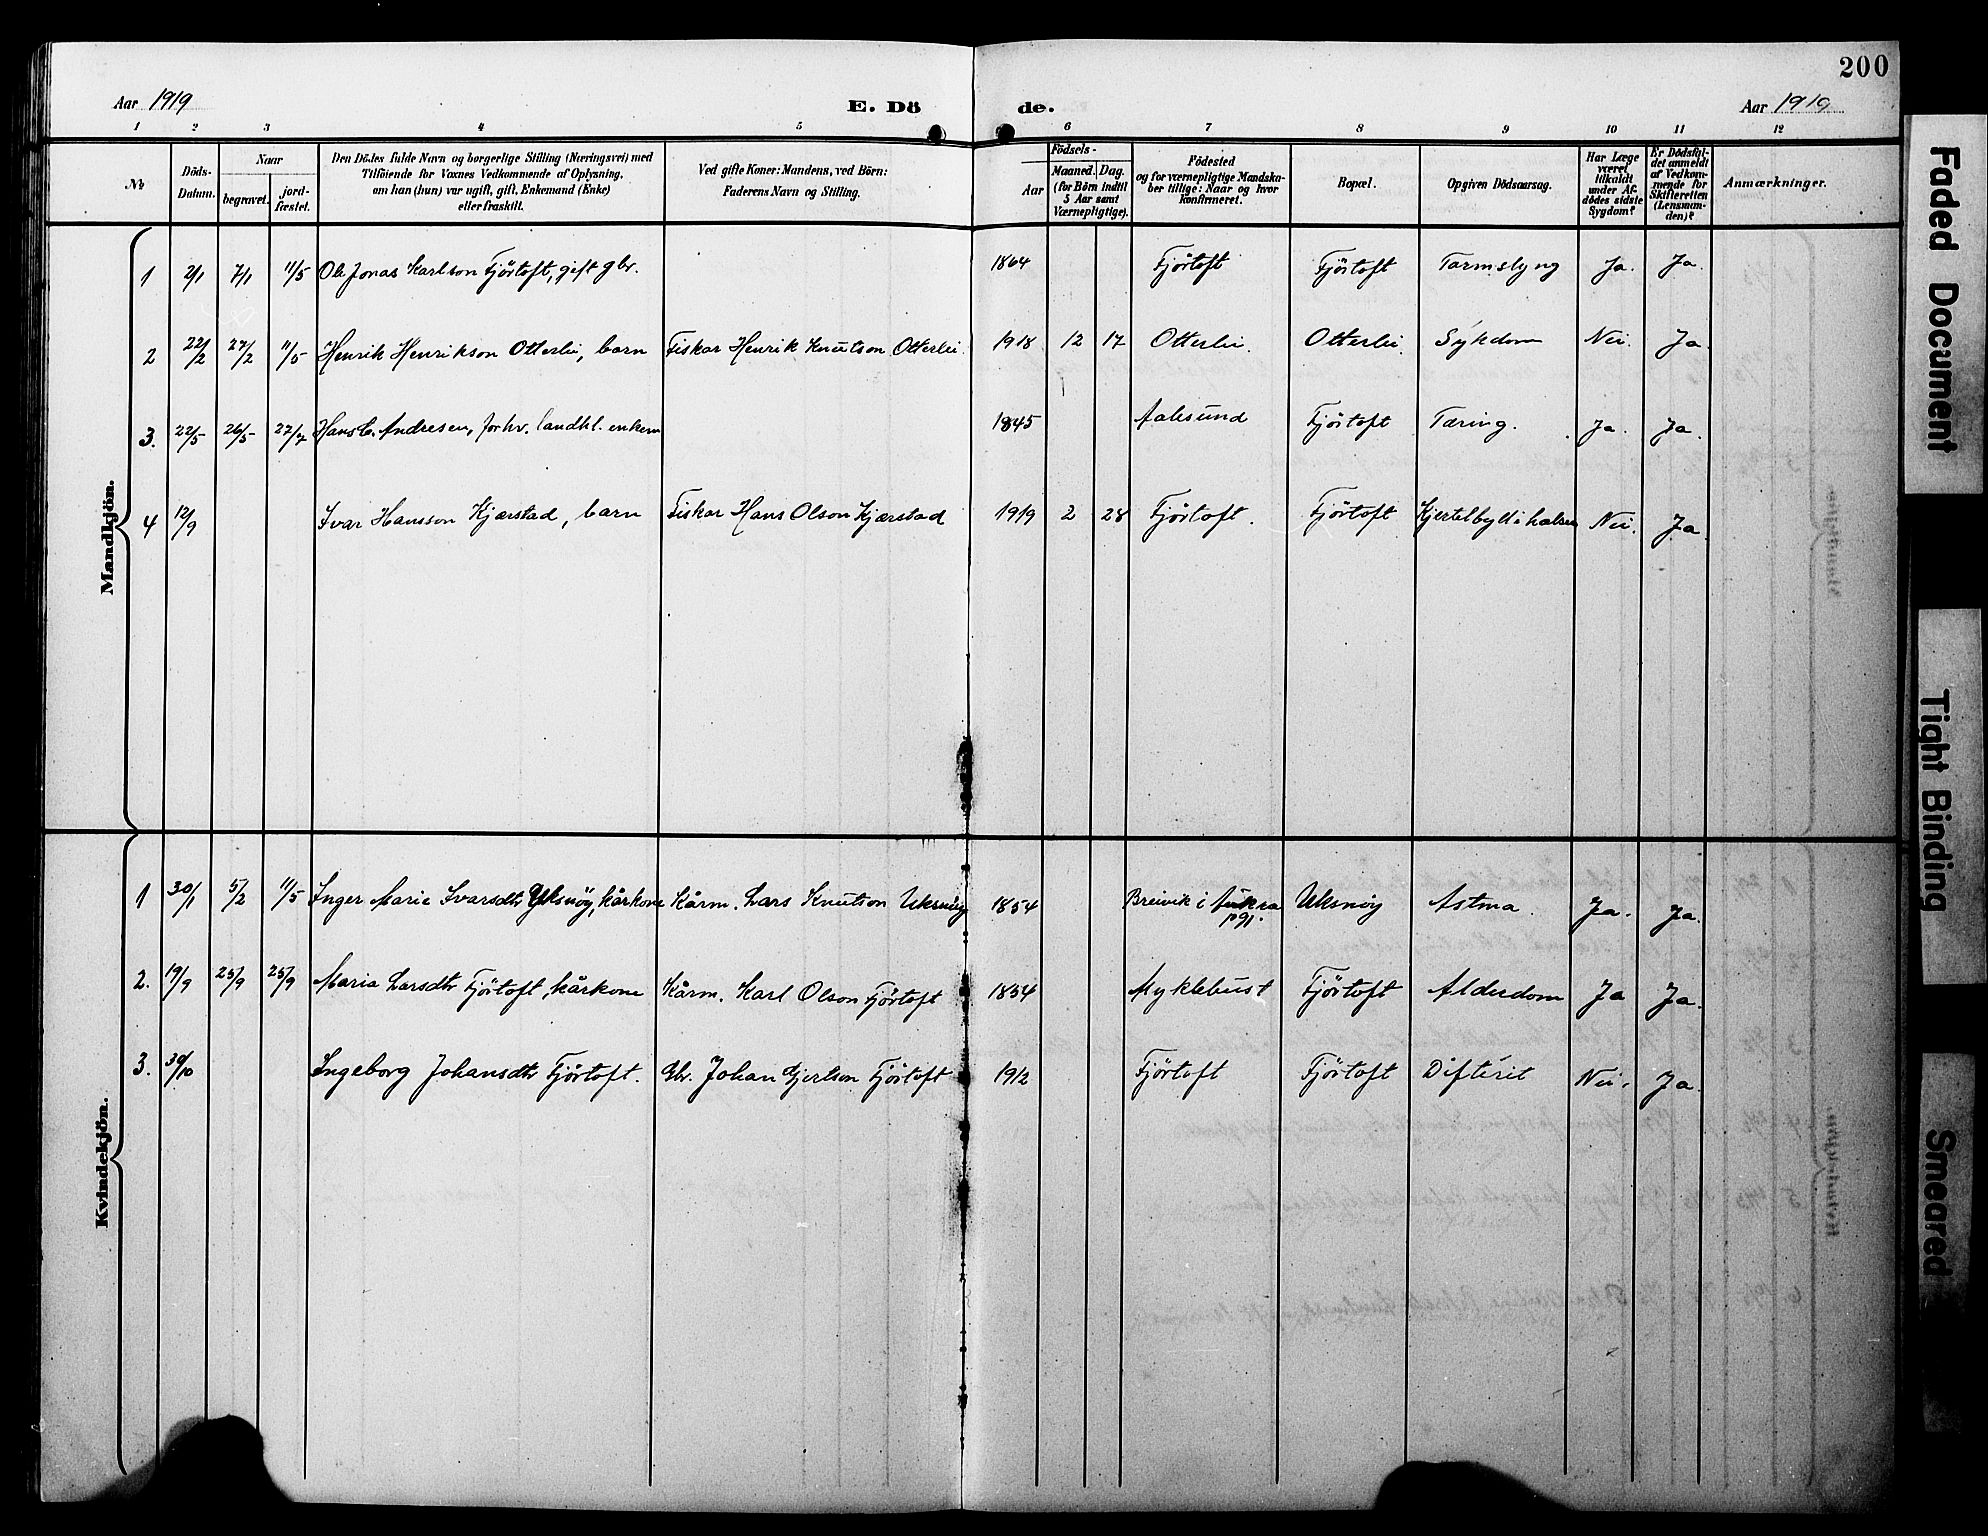 200
Aar 1919 E. Dö de. Aar 1919
1 2 3 4 5 6 7 8 9 10 11 12
No
Döds-Datum.
Naar
begravet.
jord-fæstet.
Den Dödes fulde Navn og borgerlige Stilling (Næringsvei) med
Tilföiende for Voxnes Vedkommende af Oplysning,
om han (hun) var ugift, gift, Enkemand (Enke)
eller fraskilt.
Ved gifte Koner: Mandens, ved Börn:
Faderens Navn og Stilling.
Födsels-
Aar
Maaned. Dag.
(for Börn indtil
5 Aar samt
Værnepligtige).
Födested
og for værnepligtige Mandska-
ber tillige: Naar og hvor
konfirmeret.
Bopæl.
Opgiven Dödsaarsag.
Har Læge
været
tilkaldt
under Af-
dödes sidste
Sygdom?
Er Dödsfal-
det anmeldt
af Vedkom-
mende for
Skifteretten
(Lensman-
den)?
Anmærkninger.
Mandkjön.
1 2/1 7/1 11/5 Ole Jonas Karlson Fjörtoft, gift gbr. 1864 Fjörtoft Fjörtoft Tarmslyng Ja. Ja.
2 22/2 27/2 11/5 Henrik Henrikson Otterlei, barn Fiskar Henrik Knutson Otterlei. 1918 12 17 Otterlei. Otterlei. Sykdom Nei. Ja.
3. 22/5 26/5 27/7 Hans C. Andresen, forhv. landhl. enkem 1845 Aalesund Fjörtoft Tæring. Ja. Ja.
4 12/9 Ivar Hansson Kjærstad, barn Fiskar Hans Olson Kjærstad 1919 2 28 Fjörtoft. Fjörtoft Kjertelbyll i halsen Nei. Ja.
Kvindekjön.
1 30/1 5/2 11/5 Inger Marie Ivarsdtr Uksnöy, kårkone Kårm. Lars Knutson Uksnöy 1854 Breivik i Aukra pgj. Uksnöy Astma. Ja. Ja.
2. 19/9 25/9 25/9 Maria Larsdtr Fjörtoft, kårkone Kårm. Karl Olson Fjörtoft 1834 Myklebust Fjörtoft Alderdom Ja Ja.
3. 30/10 Ingeborg Johansdtr Fjörtoft. Gbr. Johan Gjertson Fjörtoft 1912 Fjörtoft Fjörtoft Difterit Nei. Ja.
Faded Document
Tight Binding
Smeared